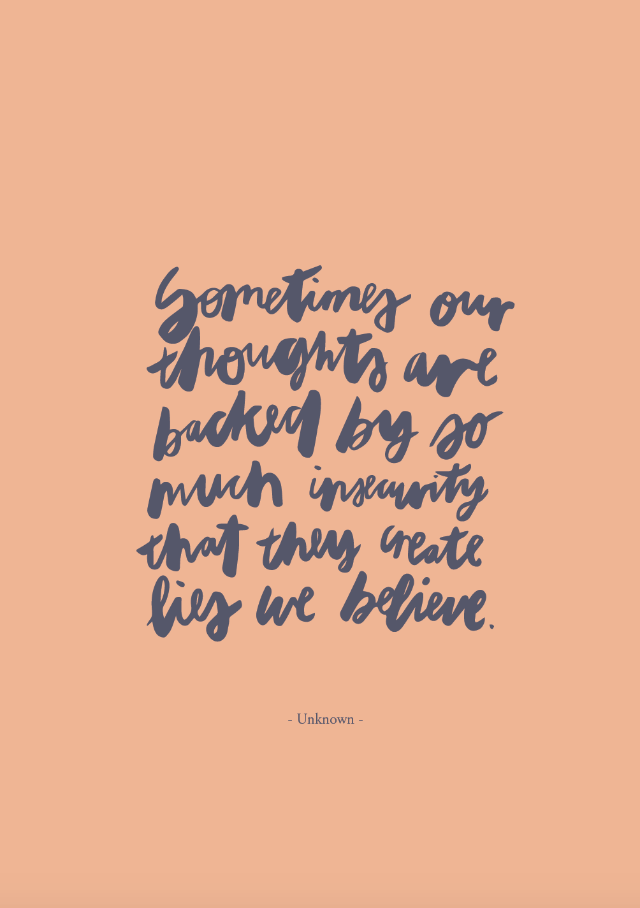 Sometimes our
thoughts are
backed by so
much insecurity
that they create
lies we believe.
- Unknown -